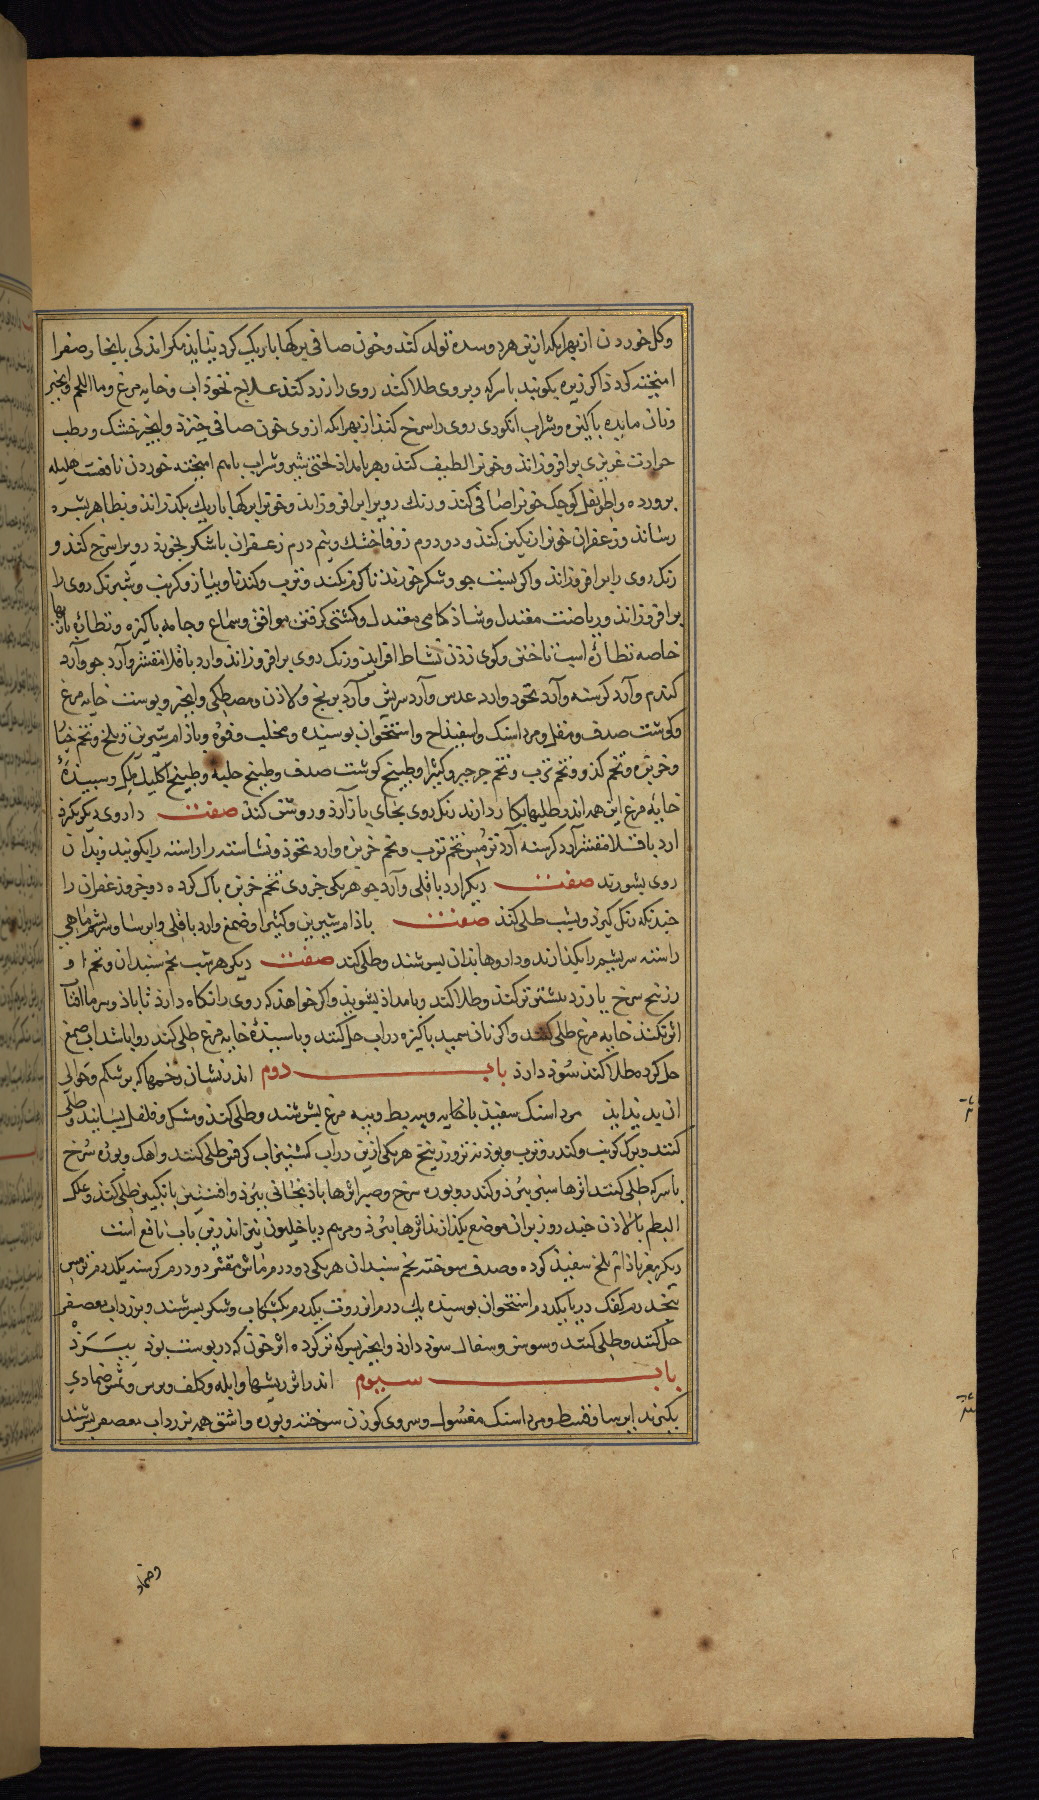 وکل خوردن از بهر آنکه ازین هر دو سده تولد کند و خون صافی برکها باریک کرد نتیابذ مکر اندکی با بخار صفرا
امیخته کرد ذ اکر زیره بکوبند با سرکه و بروی طلا کنند روی را زرد کند علاج نخوذاب و خایه مرغ و ما اللحم و انجیر
و نان مایده پاکیزه و شراب انکوری روی را سرخ کنذ از بهر انکه از وی خون صافی خیزذ و انجیر خشک و رطب
حرارت غریزی برافروزاند و خونرا لطیف کند و هر بامداذ لختی شیر و شراب باهم امیخته خوردن نافعست هلیله
برورده و اطریفل کوجک خونرا صافی کند و رنک رویرا برافروزاند و خونرا برکها باریک بکذراند و بظاهر بشره
رساند و زعفران خونرا رنکین کند و دو درم زوفا خشک و نیم درم زعفران با شکر بخورند رویرا سرخ کند و
رنک روی را برافروزاند واکر بست جو و شکر خورند ناکوز نکند و ترب و کندنا و پیاز و کرنب و سیر رنک روی را
برافروزاند و ریاضت معتدل و شاذکامی معتدل و کشتی کرفتن موافق و سماع و جامه پاکیزه و نظاره بازیها
خاصه نظاره اسب تاختن و کوی زدن نشاط افزاید و رنک روی برافروزاند و ارد باقلا مقشر و آرد جو و آرد
کندم و آرد کرسنه و آرد نخود و ارد عدس و آرد سریش و آرد برنج و لاذن و مصطکی و انجیر و پوست خایه مرغ
و کوشت صدف و مقل و مرداسنک و اسفیذاج و استخوان بوسیده و محلب و فوه و باذام شیرین و تلخ و تخم خیار
و خربزه و تخم کذو و تخم ترب و تخم جرجیر و کثیرا و طبیخ کوشت صدف و طبیخ حلبه و طبیخ اکلیل ملک و سبیذه
خایه مرغ این همه اندر طلیها بکار دارند رنک روی بجای باز آرذ و روشن کند صفت داروی دیکر بکیرند
ارد باقلا مقشر آرد کرسنه آرد ترمس تخم ترب و تخم خربزه و ارد نخوذ و نشاسته راراسته را بکوبند و بذان
روی بشورند صفت دیکر ارد باقلی و آرد جو هریکی جزوی تخم خربزه باک کرده دو جزو زعفران را
جندانکه رنک کیرذ و بشب طلی کنند صفت باذام شیرین و کثیرا و صمغ و ارد باقلی و ایرسا و سریشم ماهی
راسته سریشم را بکذازند و داروها بذان بسرشند و طلی کنند صفت دیکر هر شب تخم سبندان و تخم
زرنیخ سرخ یا زرد بشیر تر کنند و طلا کنند و بامداذ بشویند و اکر خواهند که روی را نکاه دارد تا باذ و سرما و افتاب
اثر نکند خایه مرغ طلی کنند واکر نان سمید پاکیزه در اب حل کنند و با سبیذه خایه مرغ طلی کنند روا باشد اب صمغ
حل کرده طلا کنند سوذ دارذ باب دوم اندر نشان زخمها که بر شکم و حوالی
ان بدید اید مرداسنک سفیذ با خایه و پیه بط و پیه مرغ بسرشند و طلی کنند و مشک و فلفل بسایند و طلی
کنند و برک کرنب و کندر و ترب و پوذنه تر و زرنیخ هریکی ازین در اب کشنیز اب کرفته طلی کنند و اهک و بوره سرخ
با سرکه طلی کنند اثرها سبز ببرذ و کندر و بوره سرخ و صبر اثرها باذنجانی ببرذ و افسنتین بانکبین طلی کنند و علک
البطم با لاذن جند روز بران موضع بکذارند اثرها ببرذ و مرهم دیاخلیون نیز اندرین باب نافع است
دیکر مغز باذام تلخ سفیذ کرده و صدف سوخته تخم سبندان هریکی دو درم ماش مقشر دو درم کرسنه یکدرم ترمس
پنجدرم کفک دریا یکدرم استخوان پوسیده یک درم انزروت یکدرم بکشکاب و شکر بسرشند و بزرداب معصفر
حل کنند و طلی کنند و سوسن و سفال سوذ دارذ و انجیر بسرکه تر کرده اثر خون که در پوست بوذ ببرذ
باب سیوم اندر اثر ریشها و ابله و کلف و برص و نمش ضمادی
بکیرند ایرسا و قسط و مرداسنک مغسول و سروی کوزن سوخته و بوره و اشق همه بزرداب معصفر بسرشند
وضماد